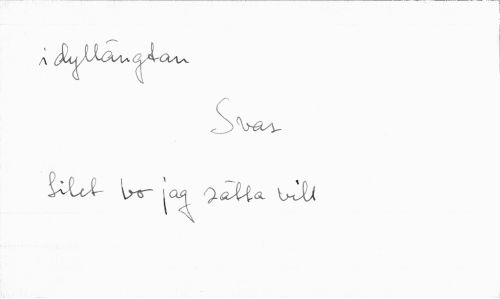 idyllängtan
Svas
Litet bo jag sätta vill